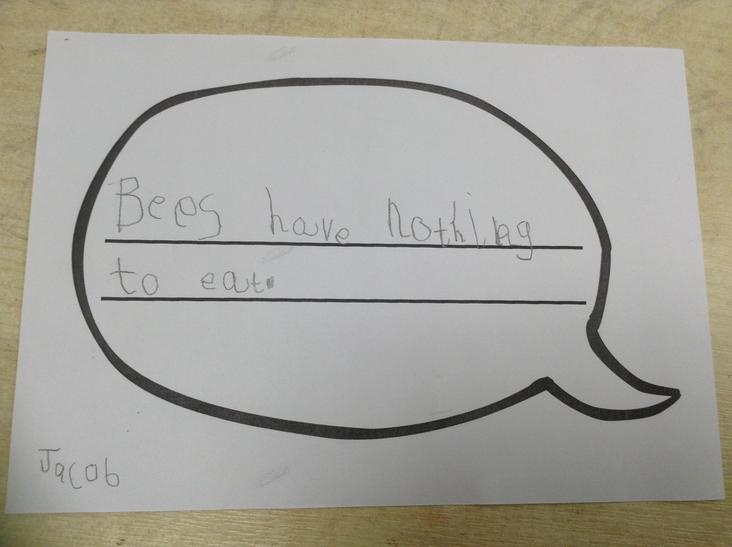 Bees have nothing
to eat.
Jacob